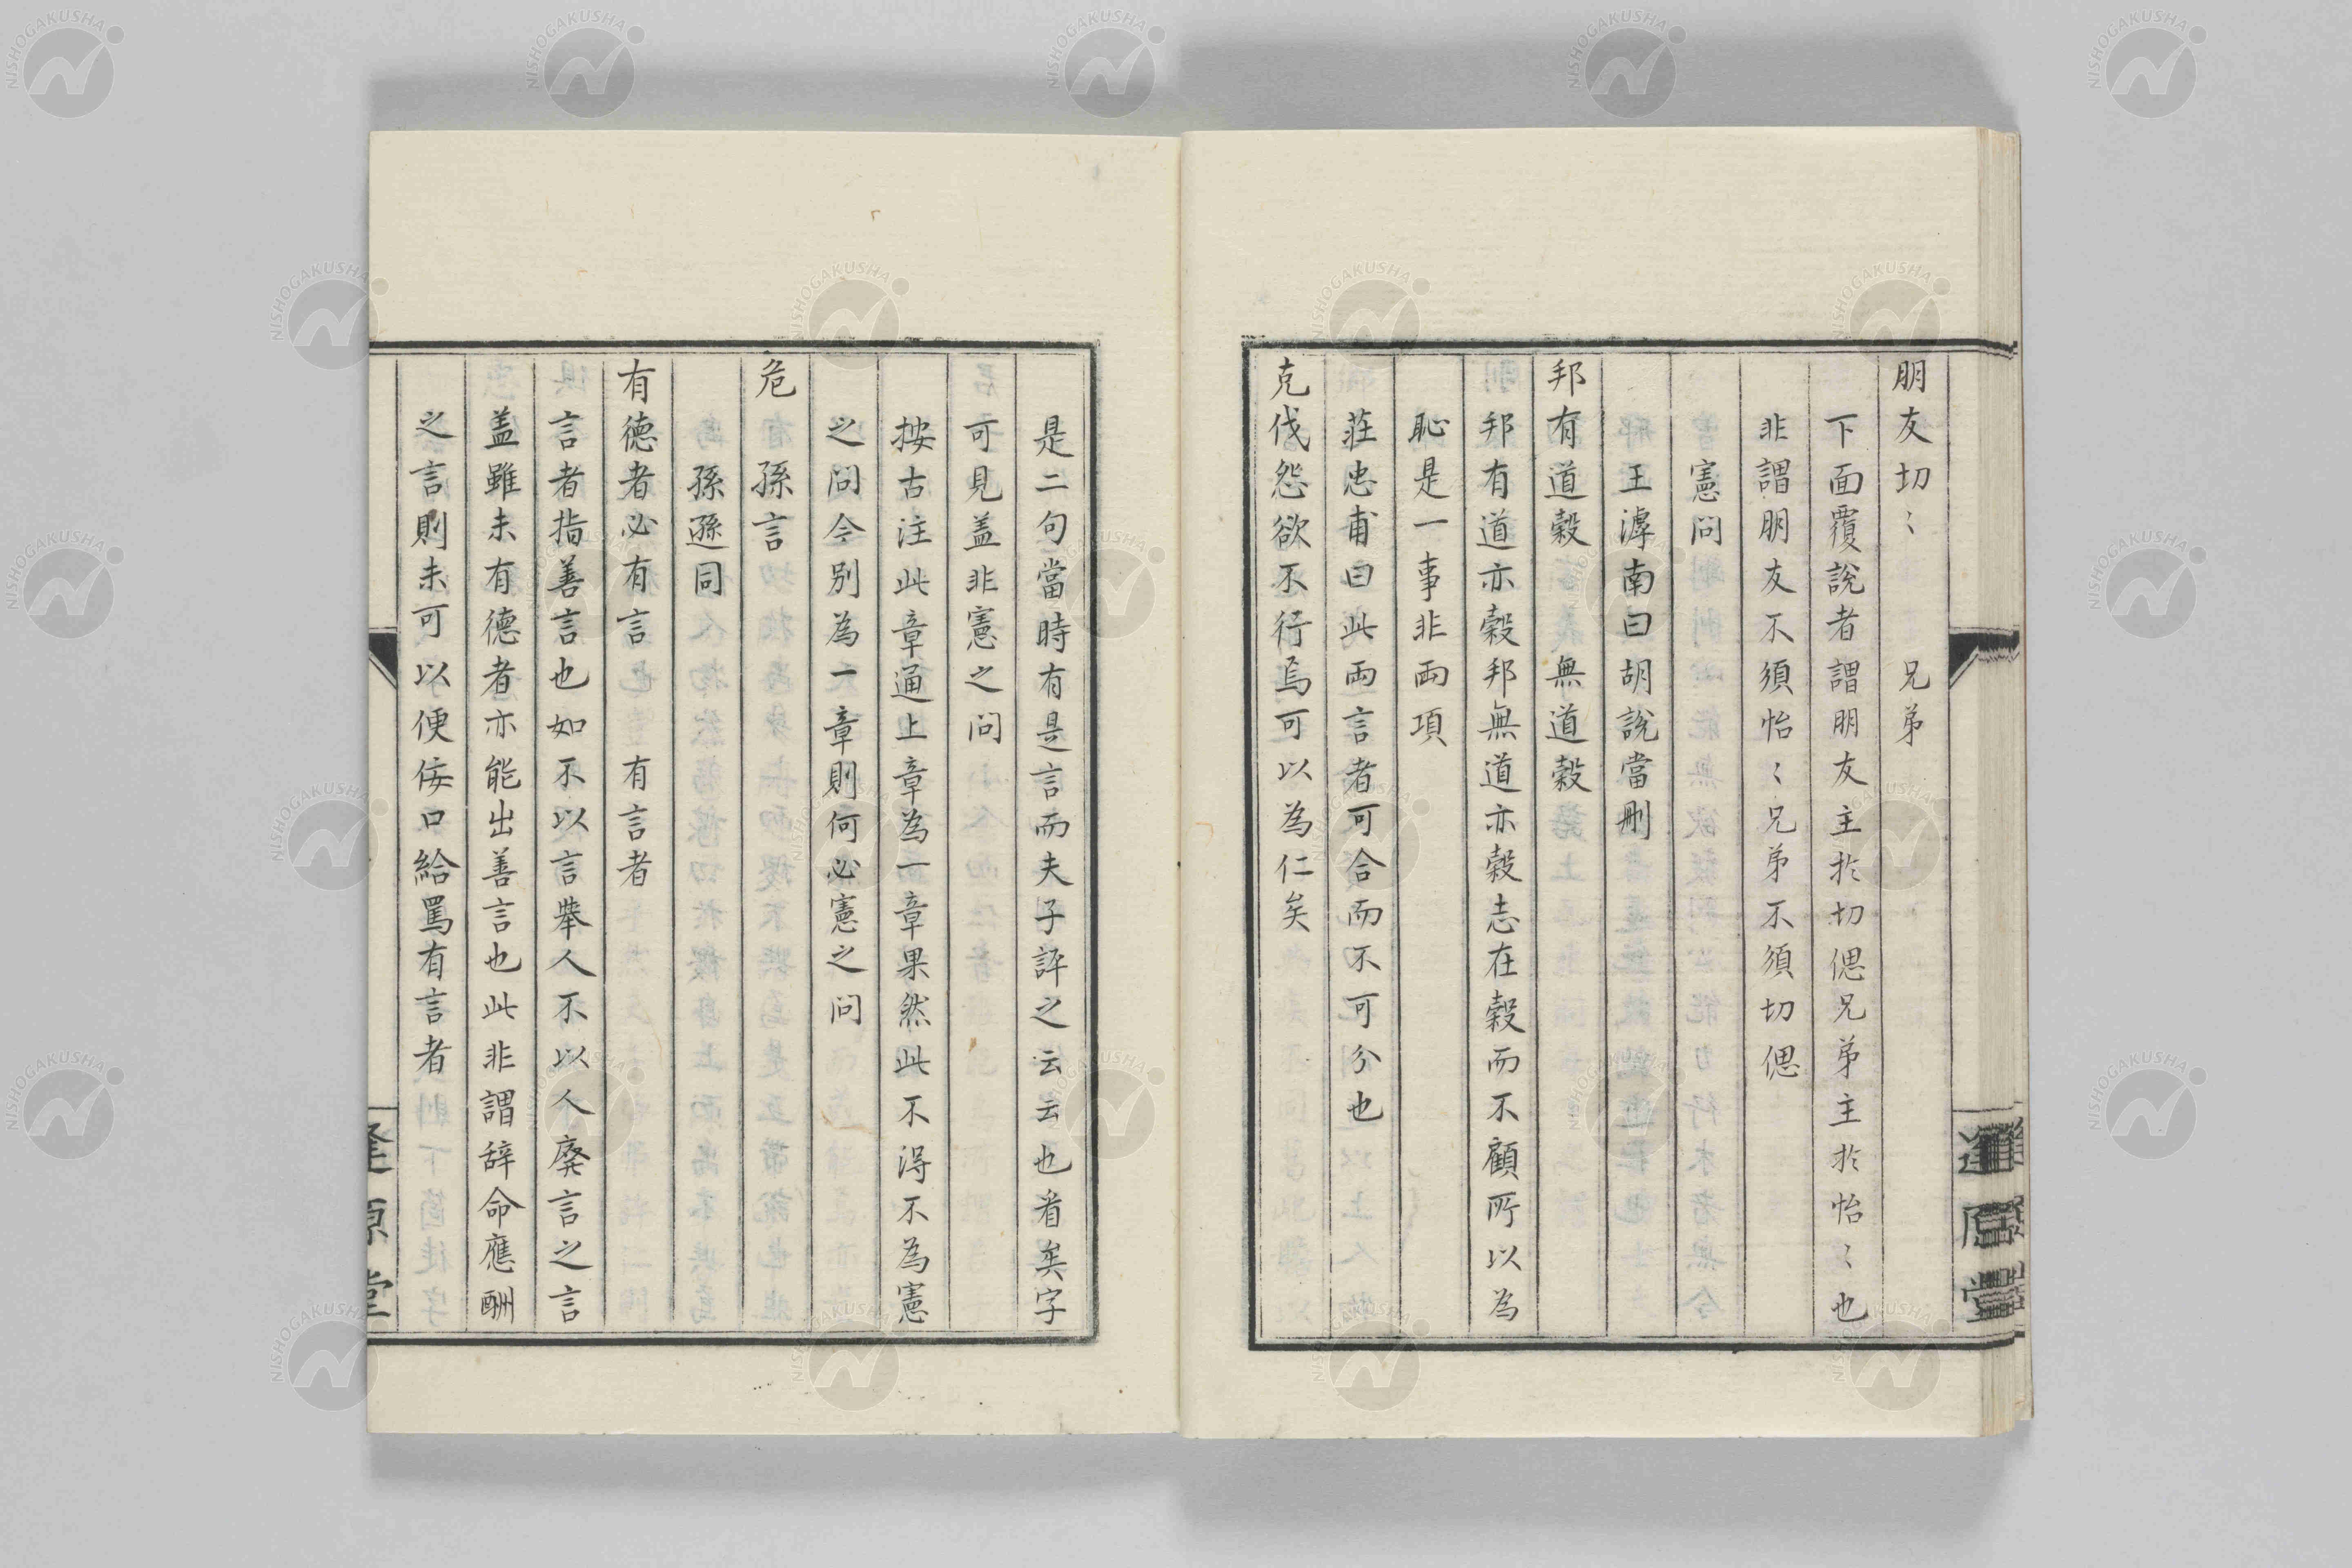 朋友切〻　　兄弟
下面覆說者謂朋友主於切偲兄弟主於怡〻也
非謂朋友不須怡〻兄弟不須切偲
憲問
王滹南曰胡說當刪
邦有道穀　　無道穀
邦有道亦穀邦無道亦穀志在穀而不顧所以為
恥是一事非両項
莊忠甫曰此両言者可合而不可分也
克伐怨欲不行焉可以為仁矣
是二句當時有是言而夫子評之云云也看矣字
可見盖非憲之問
按古注此章通上章為一章果然此不得不為憲
之問今別為一章則何必憲之問
危　孫言
孫遜同
有德者必有言　　有言者
言者指善言也如不以言舉人不以人廢言之言
盖雖未有德者亦能出善言也此非謂辞命應酬
之言則未可以便佞口給罵有言者
逢原堂
NISHOGAKUSHA